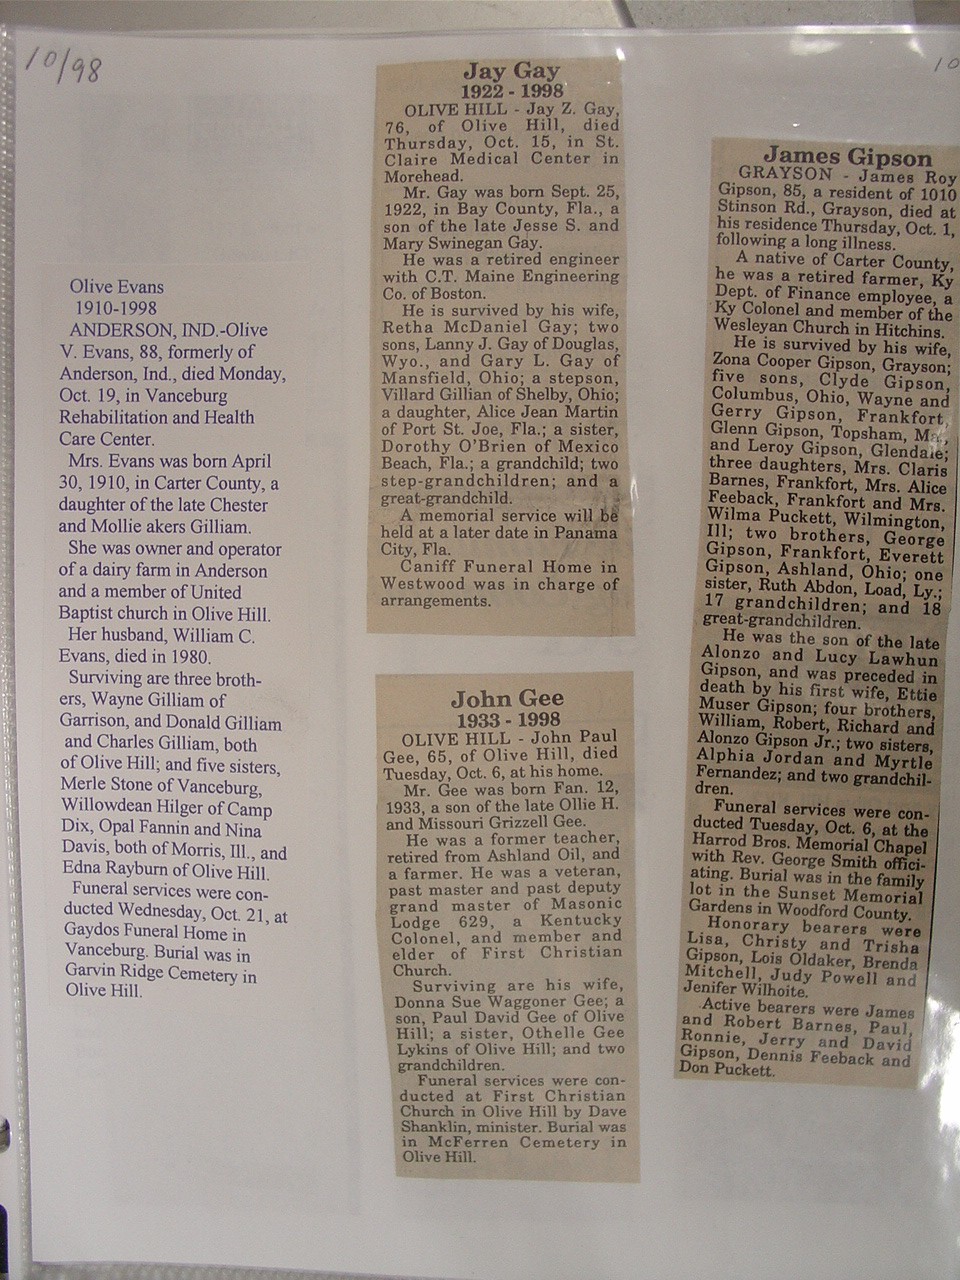 10/98
10
Olive Evans
1910-1998
ANDERSON, IND.-Olive
V. Evans, 88, formerly of
Anderson, Ind., died Monday,
Oct. 19, in Vanceburg
Rehabilitation and Health
Care Center.
Mrs. Evans was born April
30, 1910, in Carter County, a
daughter of the late Chester
and Mollie akers Gilliam.
She was owner and operator
of a dairy farm in Anderson
and a member of United
Baptist church in Olive Hill.
Her husband, William C.
Evans, died in 1980.
Surviving are three broth-
ers, Wayne Gilliam of
Garrison, and Donald Gilliam
and Charles Gilliam, both
of Olive Hill; and five sisters,
Merle Stone of Vanceburg,
Willowdean Hilger of Camp
Dix, Opal Fannin and Nina
Davis, both of Morris, Ill., and
Edna Rayburn of Olive Hill.
Funeral services were con-
ducted Wednesday, Oct. 21, at
Gaydos Funeral Home in
Vanceburg. Burial was in
Garvin Ridge Cemetery in
Olive Hill.
Jay Gay
1922 - 1998
OLIVE HILL - Jay Z. Gay,
76, of Olive Hill, died
Thursday, Oct. 15, in St.
Claire Medical Center in
Morehead.
Mr. Gay was born Sept. 25,
1922, in Bay County, Fla., a
son of the late Jesse S. and
Mary Swinegan Gay.
He was a retired engineer
with C.T. Maine Engineering
Co. of Boston.
He is survived by his wife,
Retha McDaniel Gay; two
sons, Lanny J. Gay of Douglas,
Wyo., and Gary L. Gay of
Mansfield, Ohio; a stepson,
Villard Gillian of Shelby, Ohio;
a daughter, Alice Jean Martin
of Port St. Joe, Fla.; a sister,
Dorothy O'Brien of Mexico
Beach, Fla.; a grandchild; two
step-grandchildren; and a
great-grandchild.
A memorial service will be
held at a later date in Panama
City, Fla.
Caniff Funeral Home in
Westwood was in charge of
arrangements.
John Gee
1933 - 1998
OLIVE HILL - John Paul
Gee, 65, of Olive Hill, died
Tuesday, Oct. 6, at his home.
Mr. Gee was born Fan. 12,
1933, a son of the late Ollie H.
and Missouri Grizzell Gee.
He was a former teacher,
retired from Ashland Oil, and
a farmer. He was a veteran,
past master and past deputy
grand master of Masonic
Lodge 629, a Kentucky
Colonel, and member and
elder of First Christian
Church.
Surviving are his wife,
Donna Sue Waggoner Gee; a
son, Paul David Gee of Olive
Hill; a sister, Othelle Gee
Lykins of Olive Hill; and two
grandchildren.
Funeral services were con-
ducted at First Christian
Church in Olive Hill by Dave
Shanklin, minister. Burial was
in McFerren Cemetery in
Olive Hill.
James Gipson
GRAYSON - James Roy
Gipson, 85, a resident of 1010
Stinson Rd., Grayson, died at
his residence Thursday, Oct. 1,
following a long illness.
A native of Carter County,
he was a retired farmer, Ky
Dept. of Finance employee, a
Ky Colonel and member of the
Wesleyan Church in Hitchins.
He is survived by his wife,
Zona Cooper Gipson, Grayson;
five sons, Clyde Gipson,
Columbus, Ohio, Wayne and
Gerry Gipson, Frankfort,
Glenn Gipson, Topsham,
and Leroy Gipson, Glendale;
three daughters, Mrs. Claris
Barnes, Frankfort, Mrs. Alice
Feeback, Frankfort and Mrs.
Wilma Puckett, Wilmington,
Ill; two brothers, George
Gipson, Frankfort, Everett
Gipson, Ashland, Ohio; one
sister, Ruth Abdon, Load, Ly.;
17 grandchildren; and 18
great-grandchildren.
He was the son of the late
Alonzo and Lucy Lawhun
Gipson, and was preceded in
death by his first wife, Ettie
Muser Gipson; four brothers,
William, Robert, Richard and
Alonzo Gipson Jr.; two sisters,
Alphia Jordan and Myrtle
Fernandez; and two grandchil-
dren.
Funeral services were con-
ducted Tuesday, Oct. 6, at the
Harrod Bros. Memorial Chapel
with Rev. George Smith offici-
ating. Burial was in the family
lot in the Sunset Memorial
Gardens in Woodford County.
Honorary bearers were
Lisa, Christy and Trisha
Gipson, Lois Oldaker, Brenda
Mitchell, Judy Powell and
Jenifer Wilhoite.
Active bearers were James
and Robert Barnes, Paul,
Ronnie, Jerry and David
Gipson, Dennis Feeback and
Don Puckett.